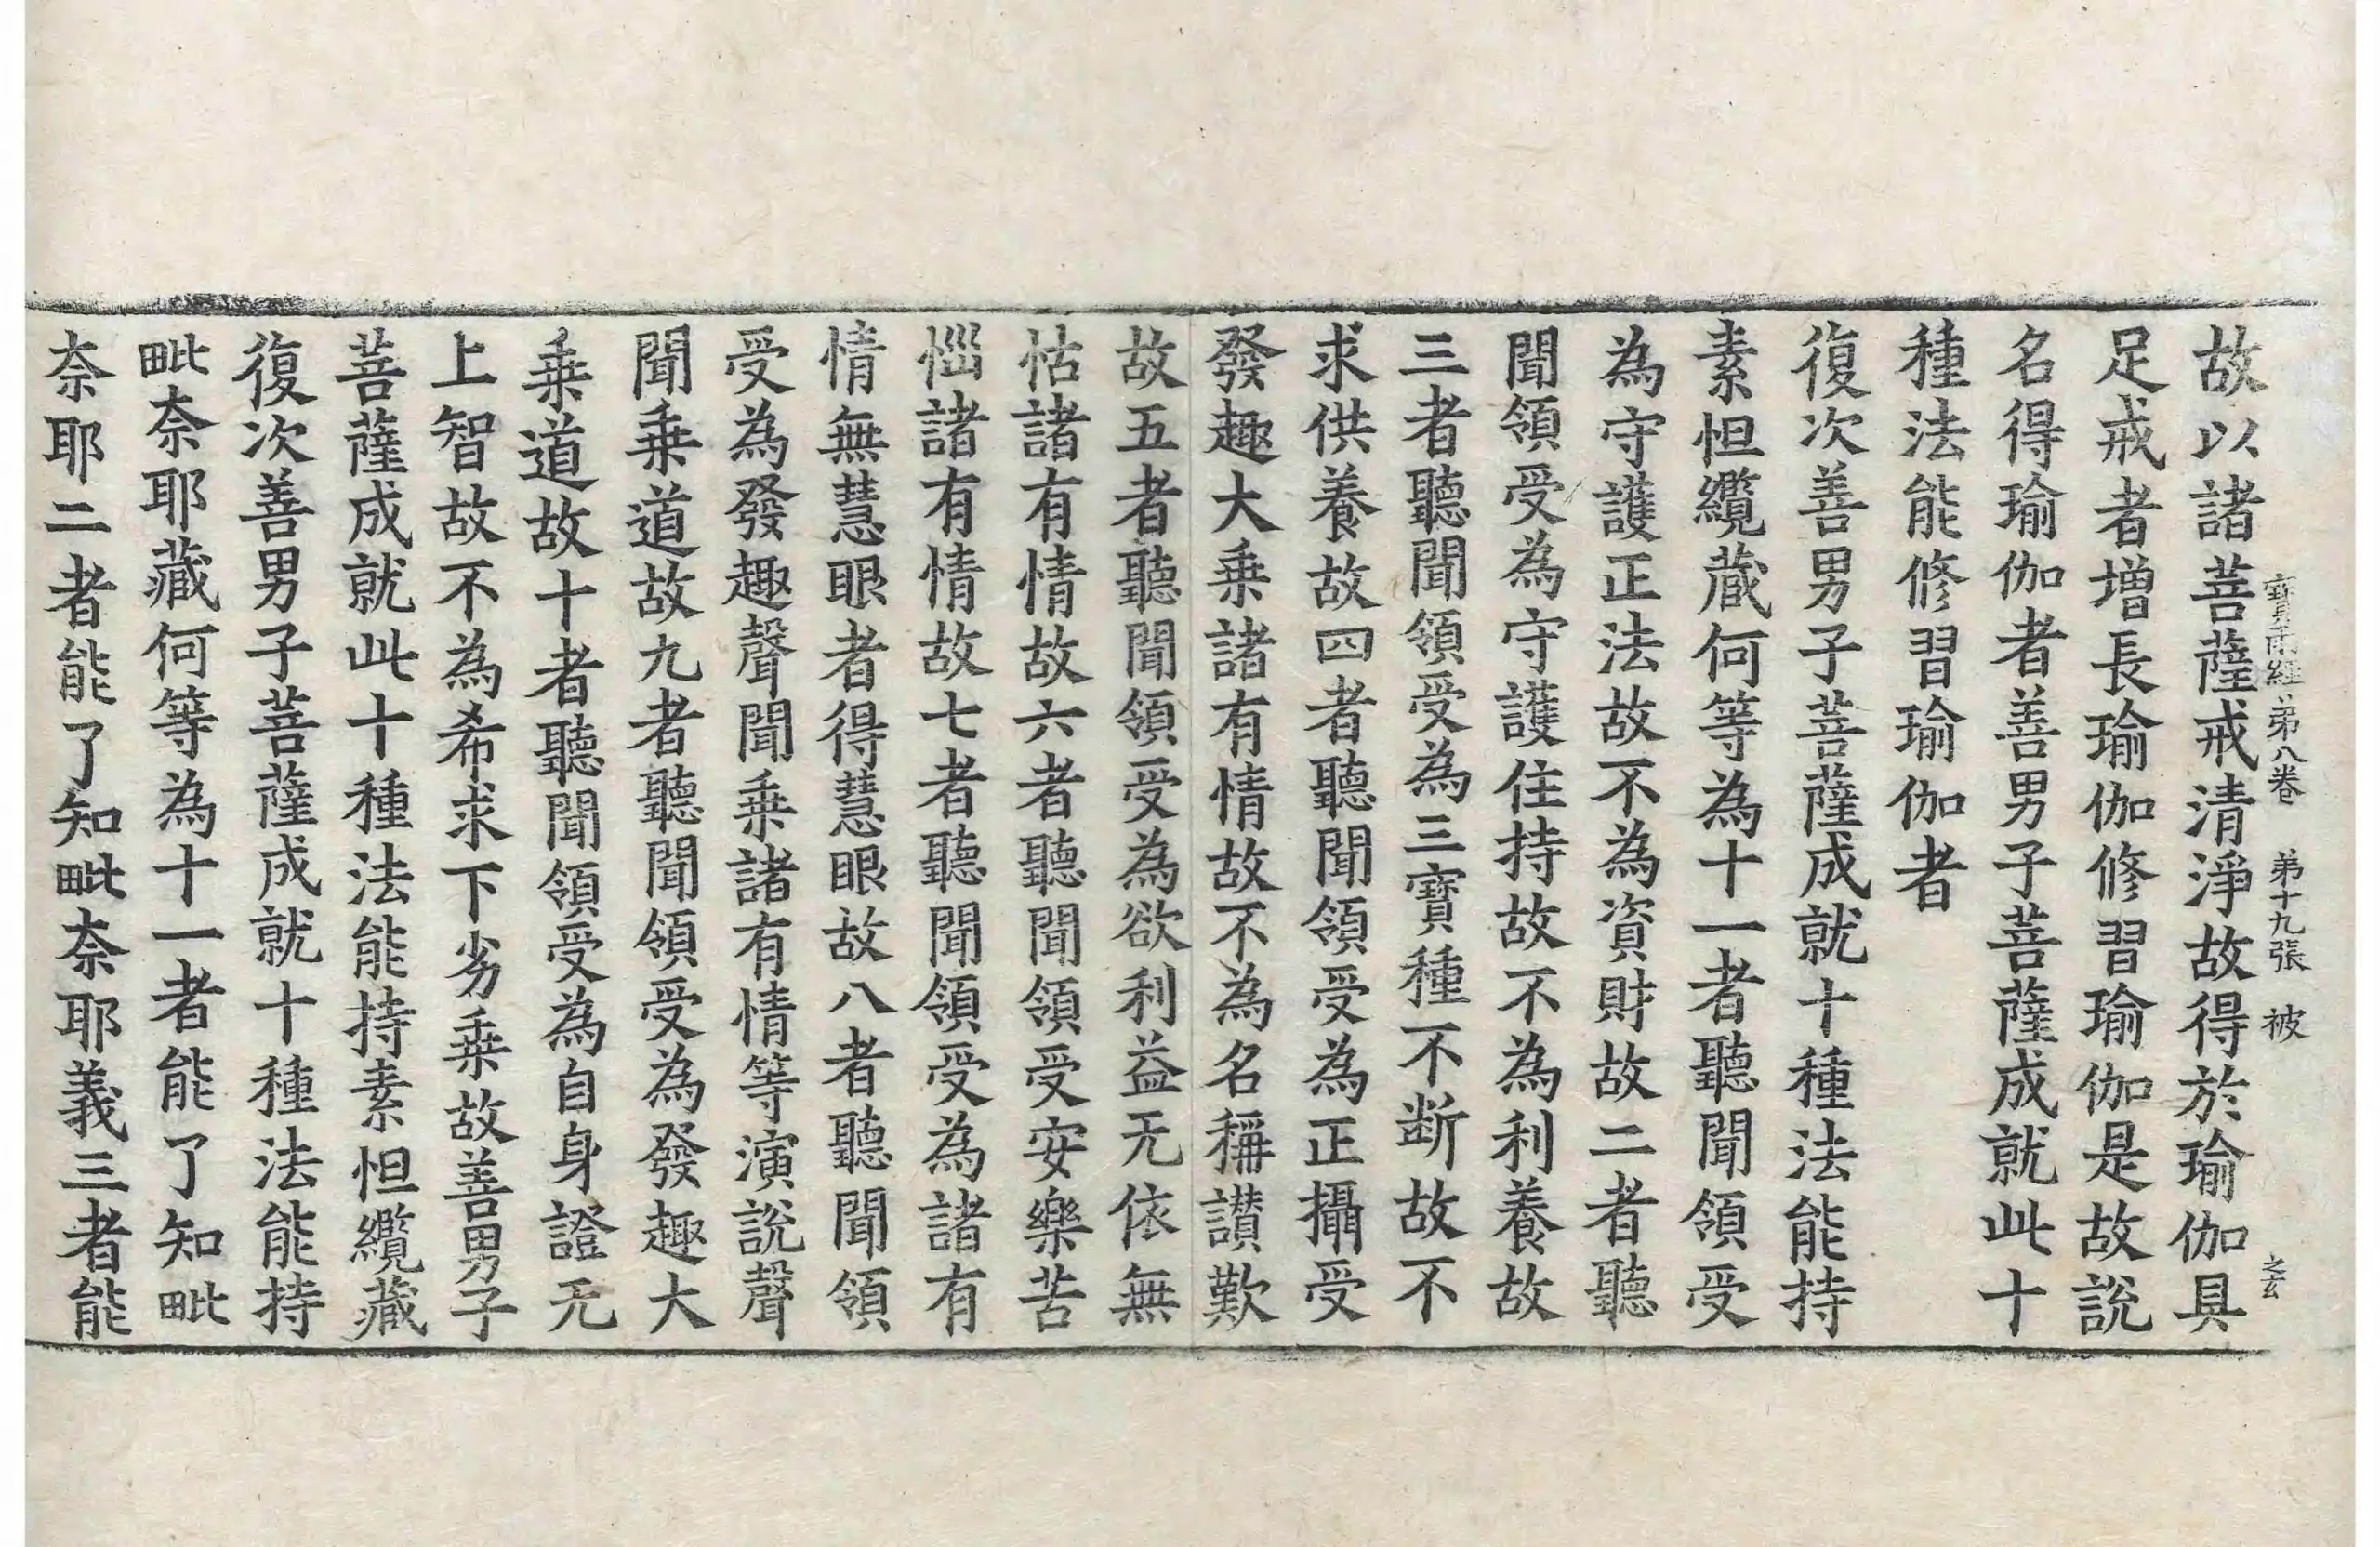 寶雨經弟八卷 弟十九張 被
故以諸菩薩戒清淨故得於瑜伽具
足戒者增長瑜伽修習瑜伽是故説
名得瑜伽者善男子菩薩成就此十
種法能修習瑜伽者
復次善男子菩薩成就十種法能持
素怛纜蔵何等為十一者聽聞領受
為守護正法故不為資財故二者聽
聞領受為守護住持故不為利養故
三者聽聞領受為三寶種不断故不
求供養故四者聽聞領受為正攝受
發趣大乗諸有情故不為名稱讃歎
故五者聽聞領受為欲利益无依無
怙諸有情故六者聽聞領受安樂苦
惱諸有情故七者聽聞領受為諸有
情無慧眼者得慧眼故八者聽聞領
受為發趣聲聞乗諸有情等演説聲
聞乗道故九者聽聞領受為發趣大
乗道故十者聽聞領受為自身證无
上智故不為希求下劣乗故善男子
菩薩成就此十種法能持素怛纜藏
復次善男子菩薩成就十種法能持
毗奈耶藏何等為十一者能了知毗
奈耶二者能了知毗奈耶義三者能